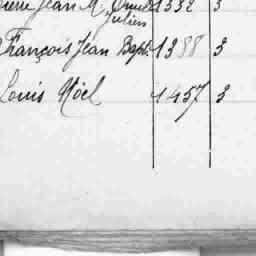 Pierre Jean M. 1332 3
Julien
François Jean Bapt. 1388 3
Louis Noël 1457 3